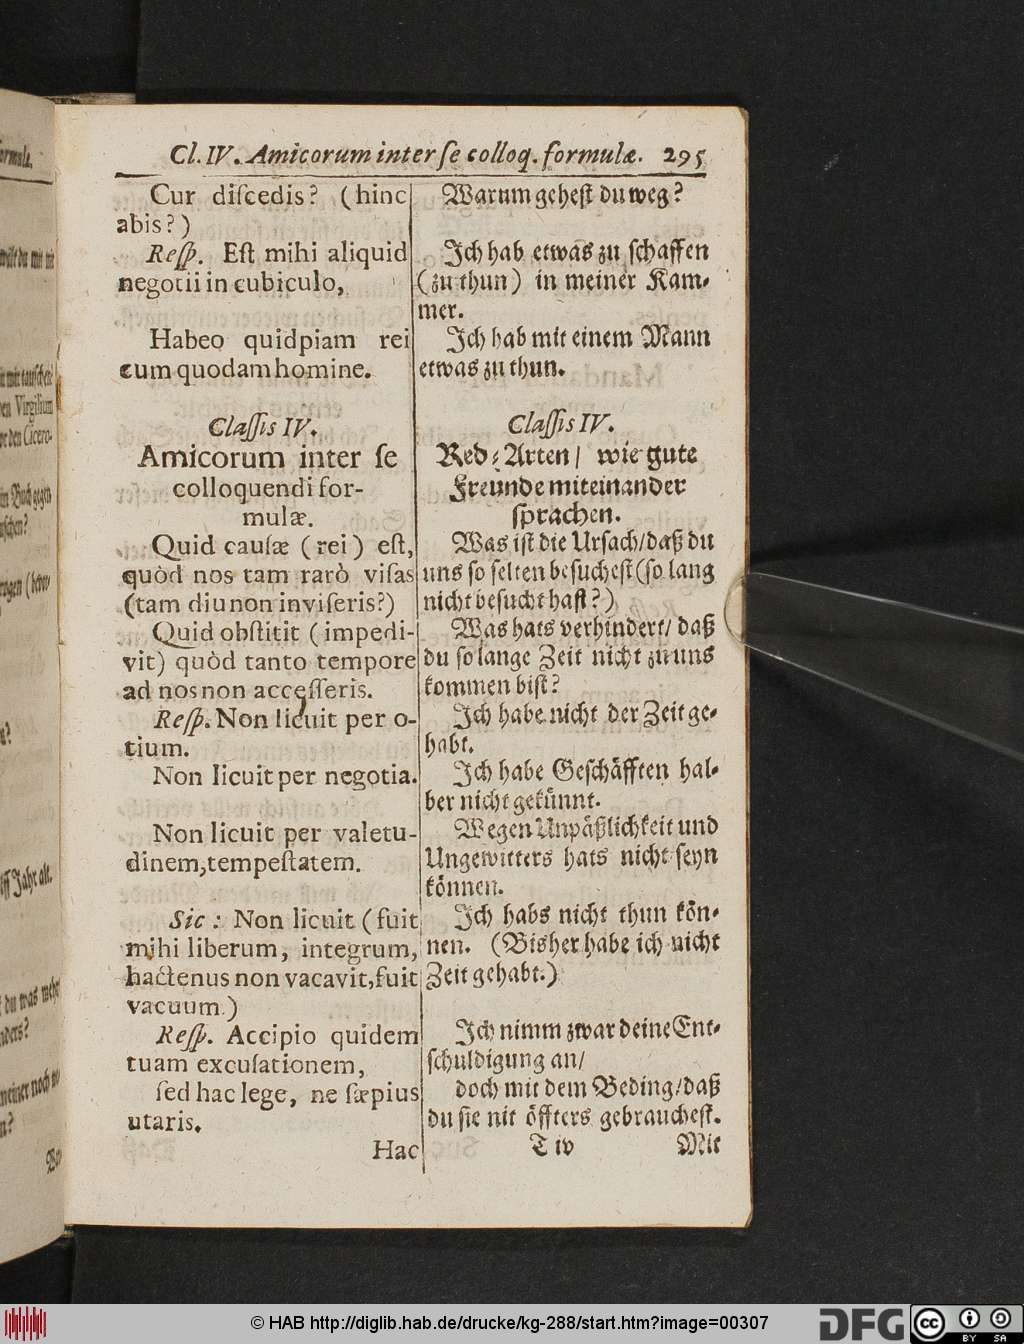 Cl. IV. Amicorum inter ſe colloq. formulæ. 295
Cur diſcedis? (hinc
abis?)
Reſp. Eſt mihi aliquid
negotii in cubiculo,
Habeo quidpiam rei
cum quodam homine.
Claſſis IV.
Amicorum inter ſe
colloquendi for-
mulæ.
Quid cauſæ (rei) eſt,
quòd nos tam rarò viſas
(tam diu non inviſeris?)
Quid obſtitit (impedi-
vit) quòd tanto tempore
ad nos non acceſſeris.
Reſp. Non licuit per o-
tium.
Non licuit per negotia.
Non licuit per valetu-
dinem, tempeſtatem.
Sic: Non licuit (fuit
mihi liberum, integrum,
hactenus non vacavit, fuit
vacuum.)
Reſp. Accipio quidem
tuam excuſationem,
ſed hac lege, ne ſæpius
utaris.
Hac
Warum geheſt du weg?
Ich hab etwas zu ſchaffen
(zu thun) in meiner Kam-
mer.
Ich hab mit einem Mann
etwas zu thun.
Claſſis IV.
Red-Arten/ wie gute
Freunde miteinander
ſprachen.
Was iſt die Urſach/daß du
uns ſo ſelten beſucheſt (ſo lang
nicht beſucht haſt?)
Was hats verhindert/ daß
du ſo lange Zeit nicht zu uns
kommen biſt?
Ich habe nicht der Zeit ge-
habt.
Ich habe Geſchäfften hal-
ber nicht gekünnt.
Wegen Unpäßlichkeit und
Ungewitters hats nicht ſeyn
können.
Ich habs nicht thun kön-
nen. (Bisher habe ich nicht
Zeit gehabt.)
Ich nimm zwar deine Ent-
ſchuldigung an/
doch mit dem Beding/daß
du ſie nit öffters gebraucheſt.
T iv Mit
© HAB http://diglib.hab.de/drucke/kg-288/start.htm?image=00307
DFG
cc BY SA